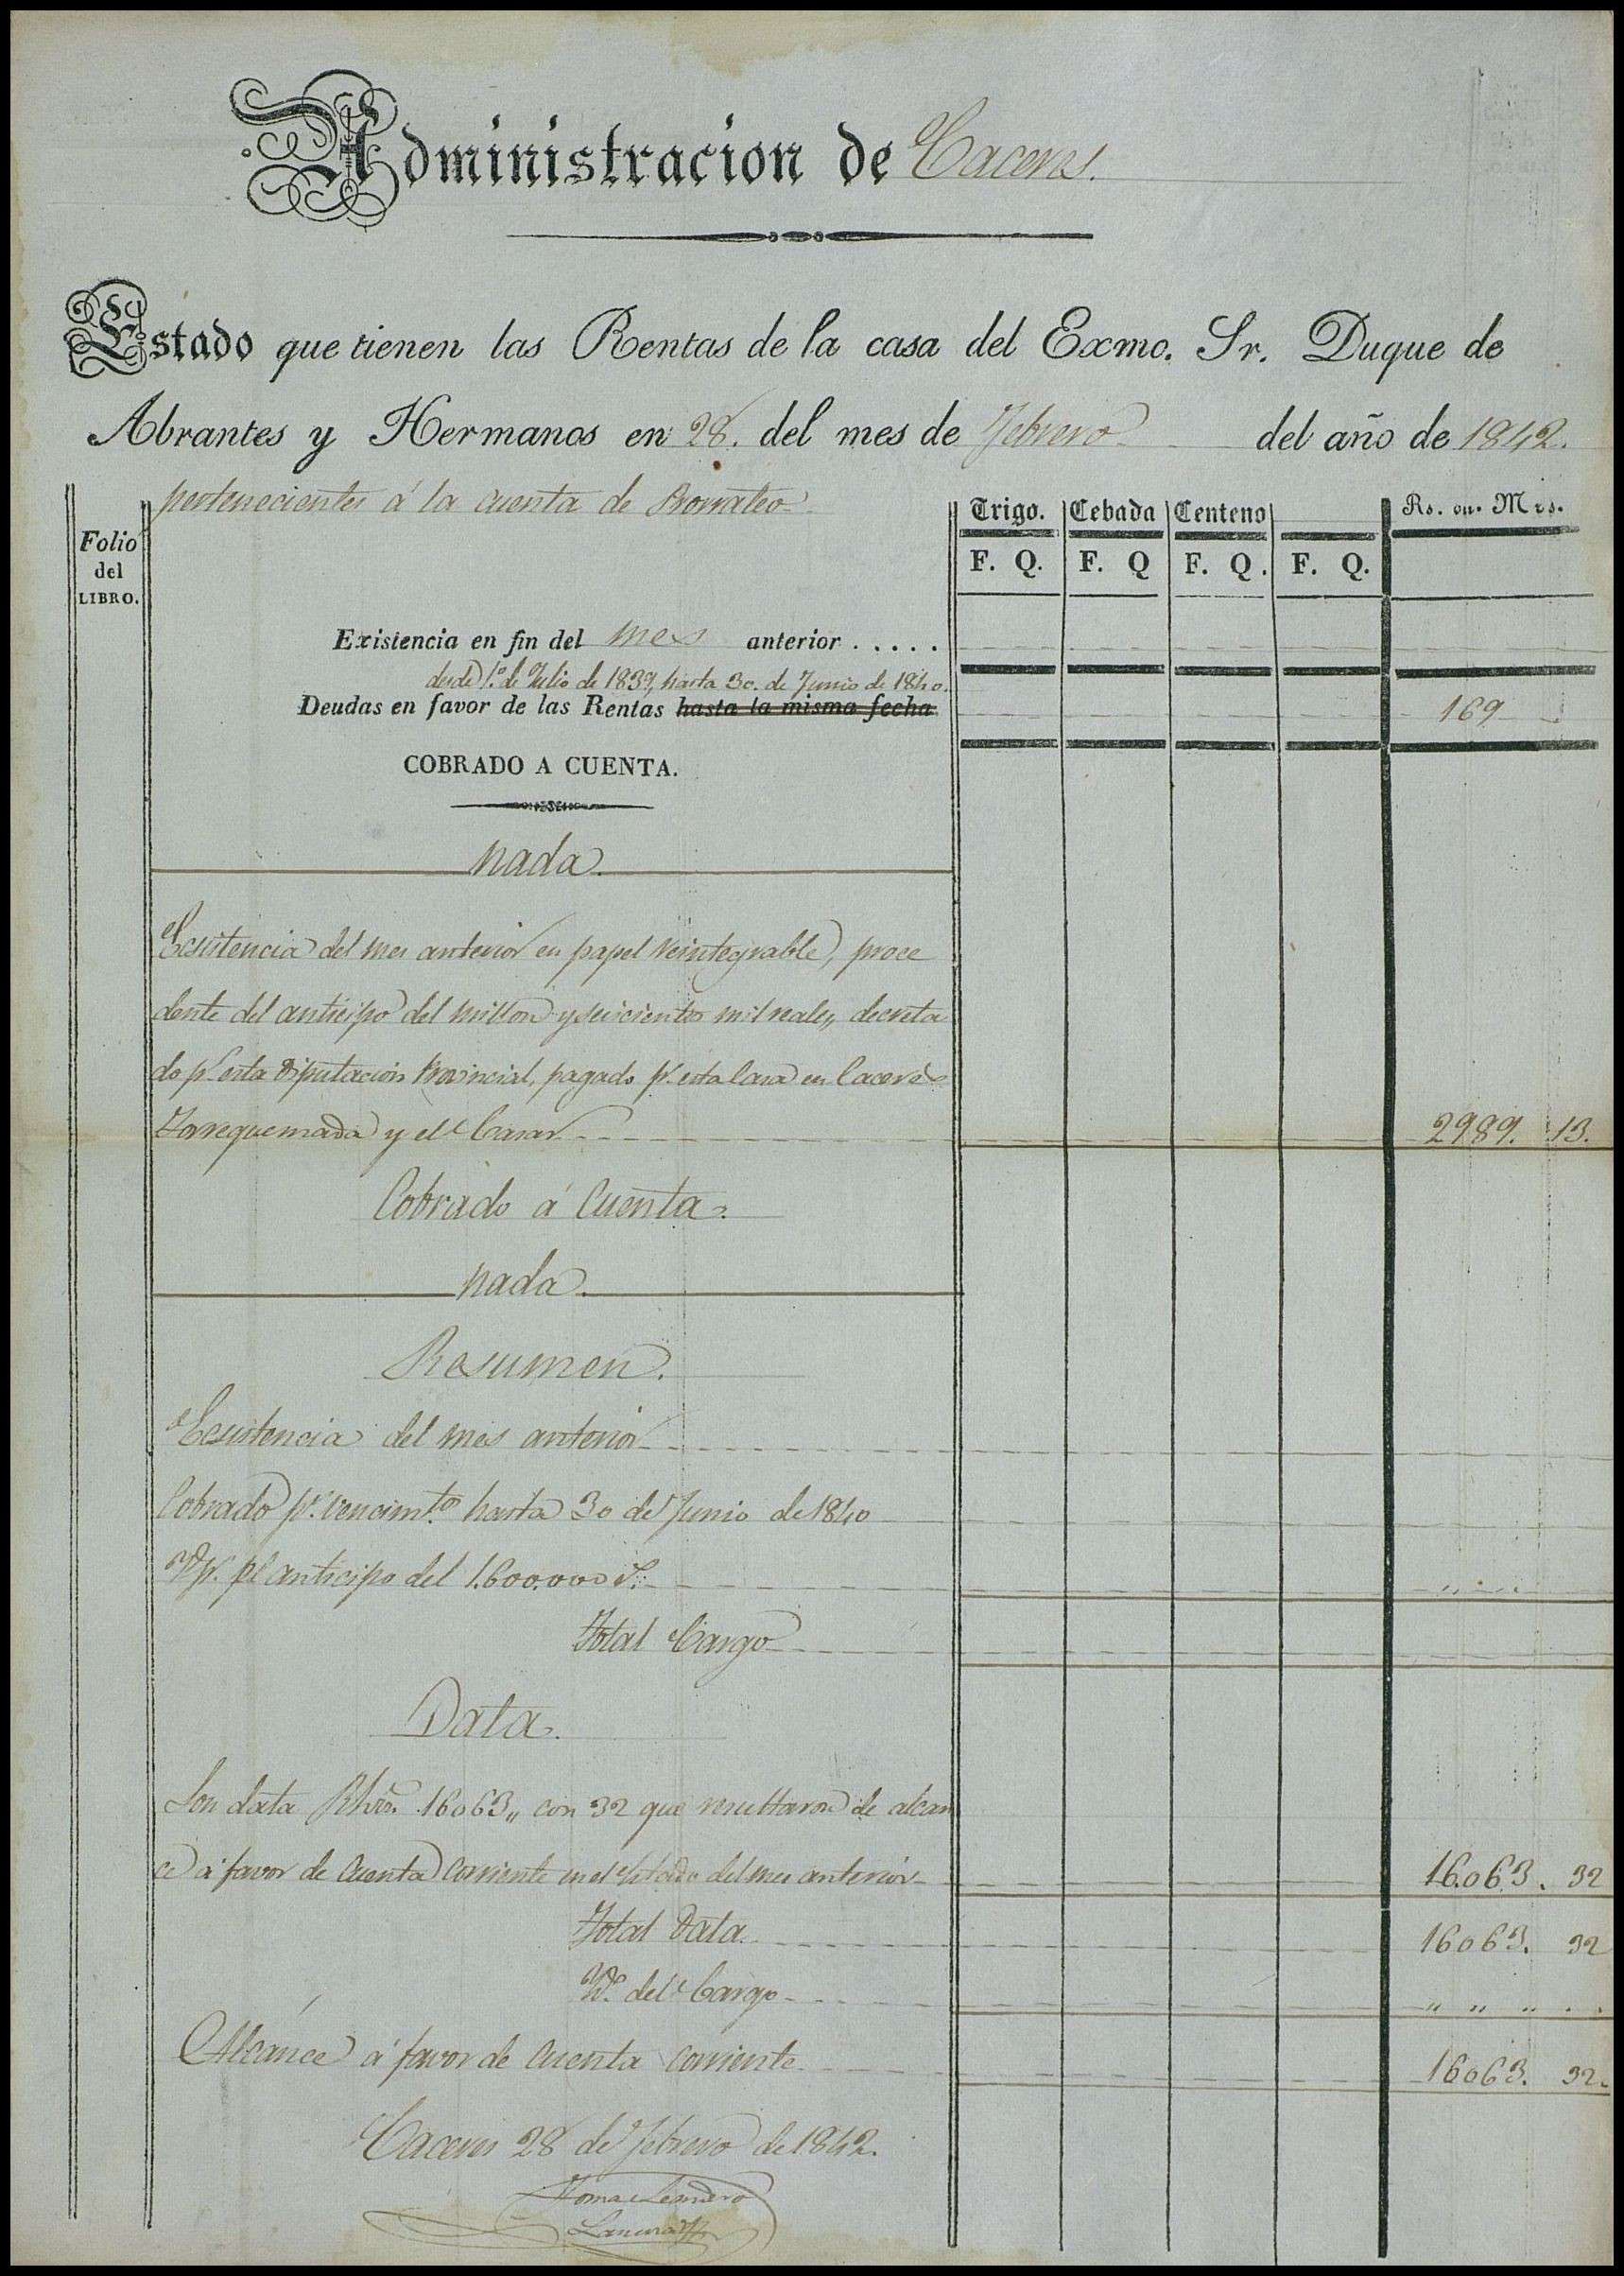 Administracion de Caceres.
Estado que tienen las Rentas de la casa del Exmo. Sr. Duque de
Abrantes y Hermanos en 28. del mes de Febrero del año de 1842.
pertenecientes á la cuenta de Prorrateo
Folio del LIBRO.
Trigo. Cebada Centeno Rs. vn. Mrs.
F. Q. F. Q F. Q. F. Q.
Existencia en fin del mes anterior . . . . .
desde 1.º de Julio de 1839, hasta 30. de Junio de 1840.
Deudas en favor de las Rentas hasta la misma fecha 169
COBRADO A CUENTA.
nada.
Ecsistencia del mes anterior en papel reintegrable, proce
dente del anticipo del millon y seiscientos mil reales, decreta
do pr. esta Diputacion Provincial, pagado pr. esta Casa en Caceres
Torrequemada y el Casar 2989. 13.
Cobrado á Cuenta.
nada.
Resumen.
Ecsistencia del mes anterior
Cobrado pr. vencimto. hasta 30 de Junio de 1840
Yd pr. el anticipo del 1.600.000 r.s
Total Cargo
Data.
Son data 16063,, con 32 que resultaron de alcan
ce á favor de Cuenta Corriente en el Estado del mes anterior 16.063. 32
Total Data 16063. 32
Yd. del Cargo ,, ,, ,, . .
Alcánce á favor de Cuenta corriente 16063. 32.
Caceres 28 de Febrero de 1842.